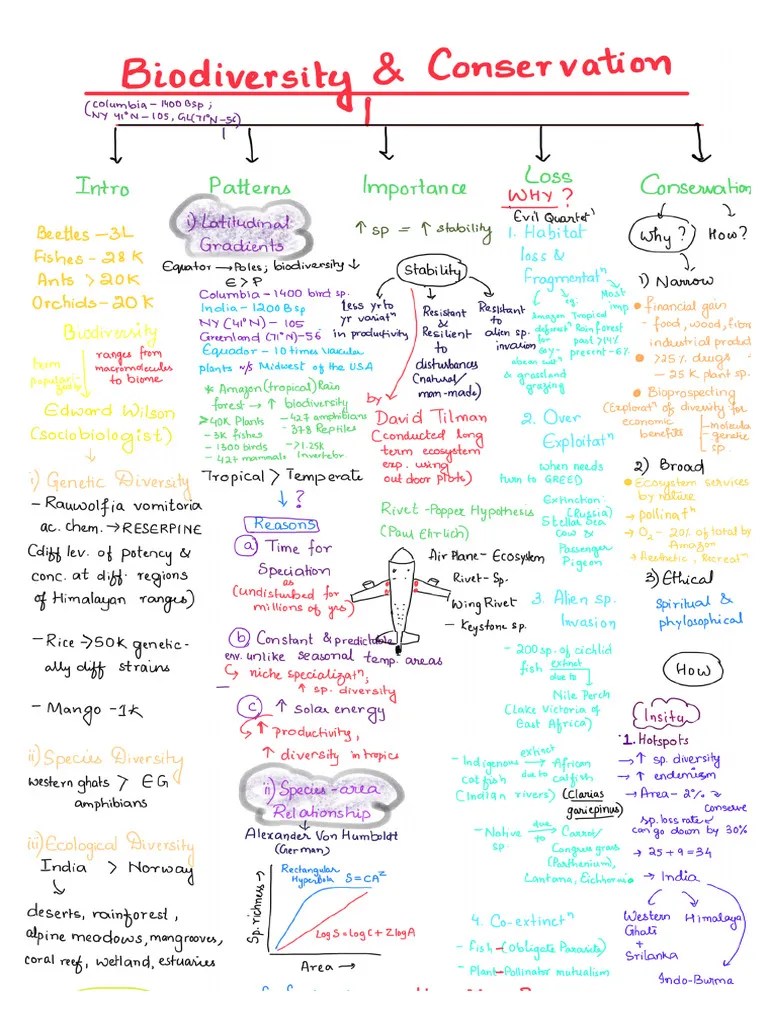 Biodiversity & Conservation
(Columbia - 1400 Bsp ;
NY 41°N - 105, GL (71°N - 56)
Intro
Beetles - 3L
Fishes - 28K
Ants > 20K
Orchids - 20K
Biodiversity
term
ranges from
macromolecules
to biome
Edward Wilson
(sociobiologist)
i) Genetic Diversity
- Rauwolfia vomitoria
ac. chem. → RESERPINE
(diff lev. of potency &
conc. at diff. regions
of Himalayan ranges)
- Rice → 50K genetic-
ally diff strains
- Mango - 1K
ii) Species Diversity
western ghats > EG
amphibians
iii) Ecological Diversity
India > Norway
deserts, rainforest,
alpine meadows, mangrooves,
coral reef, wetland, estuaries
Patterns
i) Latitudinal
Gradients
Equator → Poles; biodiversity ↓
E > P
Columbia - 1400 bird sp.
India - 1200 Bsp
NY (41°N) - 105
Greenland (71°N) - 56
Equador - 10 times vascular
plants w/s Midwest of the USA
* Amazon (tropical) Rain
forest → ↑ biodiversity
≥ 40K Plants
- 3K fishes
- 1300 birds
- 427 mammals
- 427 amphibians
- 378 Reptiles
- >1.25K
Invertebr.
Tropical > Temperate
↓ ?
Reasons
a Time for
Speciation
as
(undisturbed for
millions of yrs)
b Constant & predictable
env. unlike seasonal temp. areas
↪ niche specializatⁿ,
↑ sp. diversity
c ↑ solar energy
↪ ↑ productivity,
↑ diversity in tropics
ii) Species-area
Relationship
Alexander Von Humboldt
(German)
Rectangular
Hyperbola
S = CA^Z
log S = log C + Z log A
Sp. richness →
Area →
Importance
↑ sp = ↑ stability
Stability
Less yr to
yr variatⁿ
in productivity
Resistant
&
Resilient
to
disturbances
(natural/
man-made)
Resistant
to
alien sp.
invasion
by
David Tilman
(conducted long
term ecosystem
exp. using
out door plots)
Rivet-Popper Hypothesis
(Paul Ehrlich)
Air Plane - Ecosystem
Rivet - Sp.
Wing Rivet
- Keystone sp.
Loss
WHY ?
Evil Quartet'
1. Habitat
loss &
Fragmentatⁿ
eg:
Most
imp
Amazon
Tropical
Rainforest
past > 14%
present - 6%
& grassland
grazing
2. Over
Exploitatⁿ
when needs
turn to GREED
Extinction:
(Russia)
Stellar Sea
cow &
Passenger
Pigeon
3. Alien sp.
Invasion
- 200 sp. of cichlid
fish extinct
due to
Nile Perch
(Lake Victoria of
East Africa)
- Indigenous extinct due to → African
catfish catfish
(Indian rivers) (Clarias
gariepinus)
- Native due to → Carrot/
sp. Congress grass
(Parthenium),
Lantana, Eichhornia
4. Co-extinctⁿ
- fish - (Obligate Parasite)
- Plant - Pollinator mutualism
Conservation
Why ?
How?
1) Narrow
• Financial gain
- food, wood, fibre
industrial product
• >25% drugs
- 25 K plant sp.
• Bioprospecting
(Exploratⁿ of diversity for
economic
benefits
- molecular
- genetic
sp.
2) Broad
• Ecosystem services
by nature
→ pollinatⁿ
→ O₂ - 20% of total by
Amazon
→ Aesthetic, Recreatⁿ
3) Ethical
Spiritual &
phylosophical
How
Insitu
1. Hotspots
→ ↑ sp. diversity
→ ↑ endemism
→ Area - 2%
conserve
sp. loss rate
can go down by 30%
→ 25 + 9 = 34
→ India
Western
Ghati
+
Srilanka
Himalaya
Indo-Burma